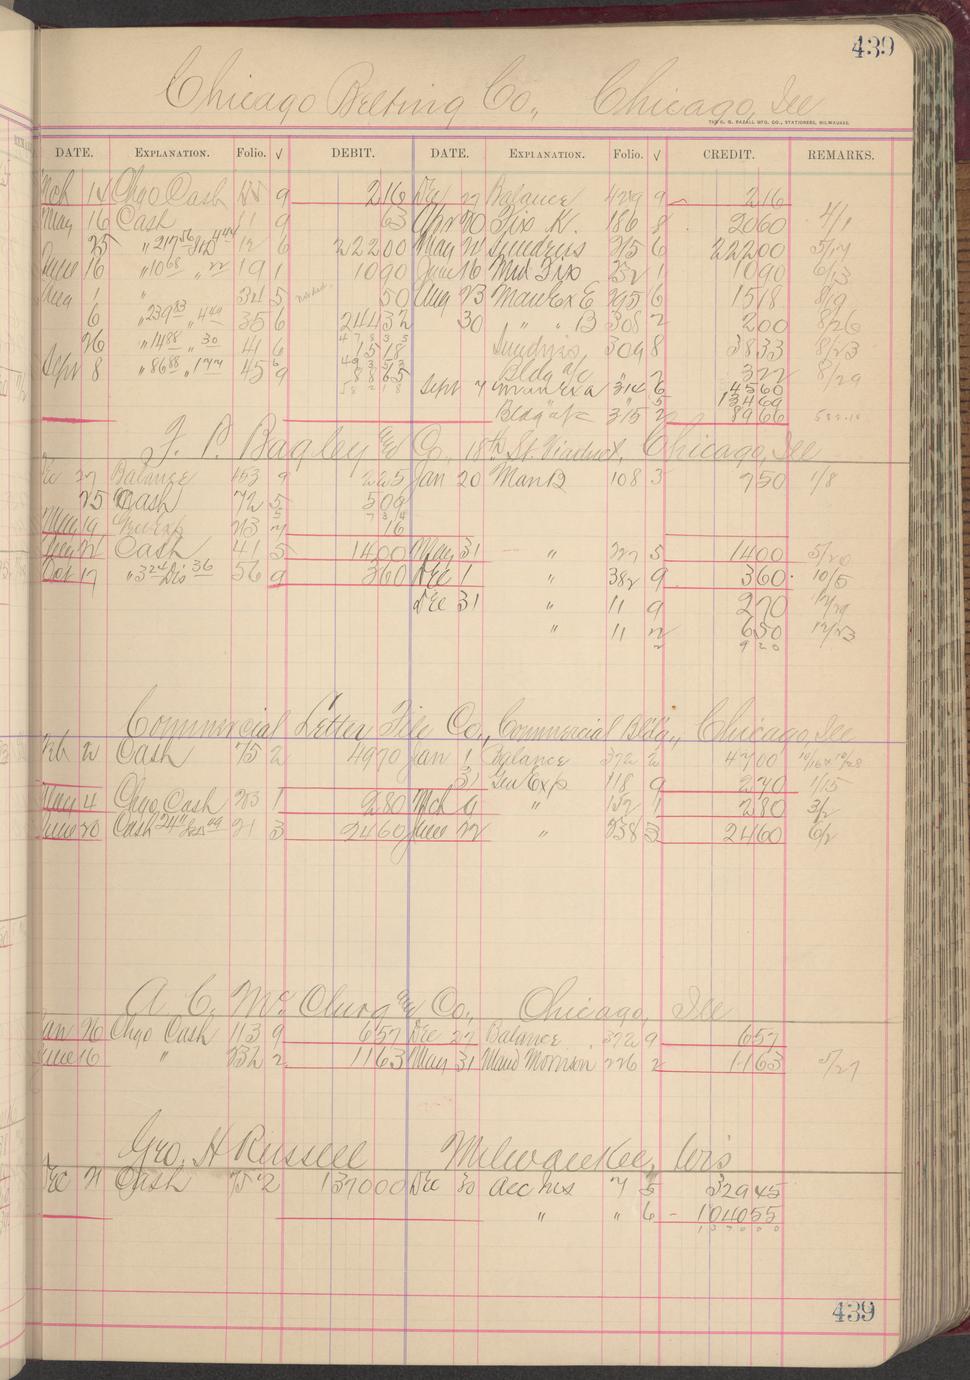 439
Chicago Belting Co., Chicago, Ill
THE C. G. RAZALL MFG. CO., STATIONERS, MILWAUKEE.
DATE. EXPLANATION. Folio. √ DEBIT. DATE. EXPLANATION. Folio. √ CREDIT. REMARKS.
Mch 14 Chgo Cash 9 216 Dec 27 Balance 429 9 216
May 16 Cash 11 9 63 Apr 20 Fix K. 186 8 2060 4/1
25 " 217 56 4 44 12 6 22200 May 21 Sundries 215 6 22200 5/17
June 16 " 10 68 " 22 191 1090 June 16 Md Fix 232 1 1090 6/13
Aug 1 " 34 5 50 Aug 23 Man Ex E 295 6 1518 8/19
6 " 239 83 " 4 49 35 6 24432 30 " " B 308 2 200 8/26
26 " 14 88 " 30 41 6 1518 Sundries, 309 8 3833 8/23
Sept 8 " 86 88 " 1 77 45 9 8865 Bldg a/c 322 8/29
Sept 7 Man Ex a 314 6 4560
" 5 13469
Bldg a/c 315 2 8966
F. P. Bagley and Co., 18th St. Viaduct, Chicago, Ill
Dec 27 Balance 453 9 225 Jan 20 Man B 108 3 750 1/8
25 Cash 72 5 509
May 19 213 7 16
May 21 Cash 41 5 1400 May 31 " 227 5 1400 5/20
Oct 17 " 3 24 Dis 36 56 9 360 Dec 1 " 382 9 360 10/5
Dec 31 " 11 9 270 12/29
" 11 2 650 12/23
9 20
Commercial Letter File Co., Commercial Bldg., Chicago, Ill
Feb 2 Cash 75 2 4970 Jan 1 Balance 372 2 4700 10/16 & 10/28
31 Gen Exp 118 9 270 1/15
May 4 Chgo Cash 203 1 280 Mch 9 " 152 1 280 3/2
June 20 Cash 24 11 Dis 49 21 3 2460 June 22 " 238 3 2460 6/2
A. C. Mc Clurg and Co., Chicago, Ill
Jan 26 Chgo Cash 113 9 657 Dec 27 Balance 372 9 657
June 16 " 232 2 1163 May 31 Maud Morrison 226 2 1163 5/27
Geo. H Russell Milwaukee, Wis
Dec 31 Cash 75 2 137000 Dec 30 Acc 7 5 32945
" " 6 - 104055
1 3 7 0 0 0
439